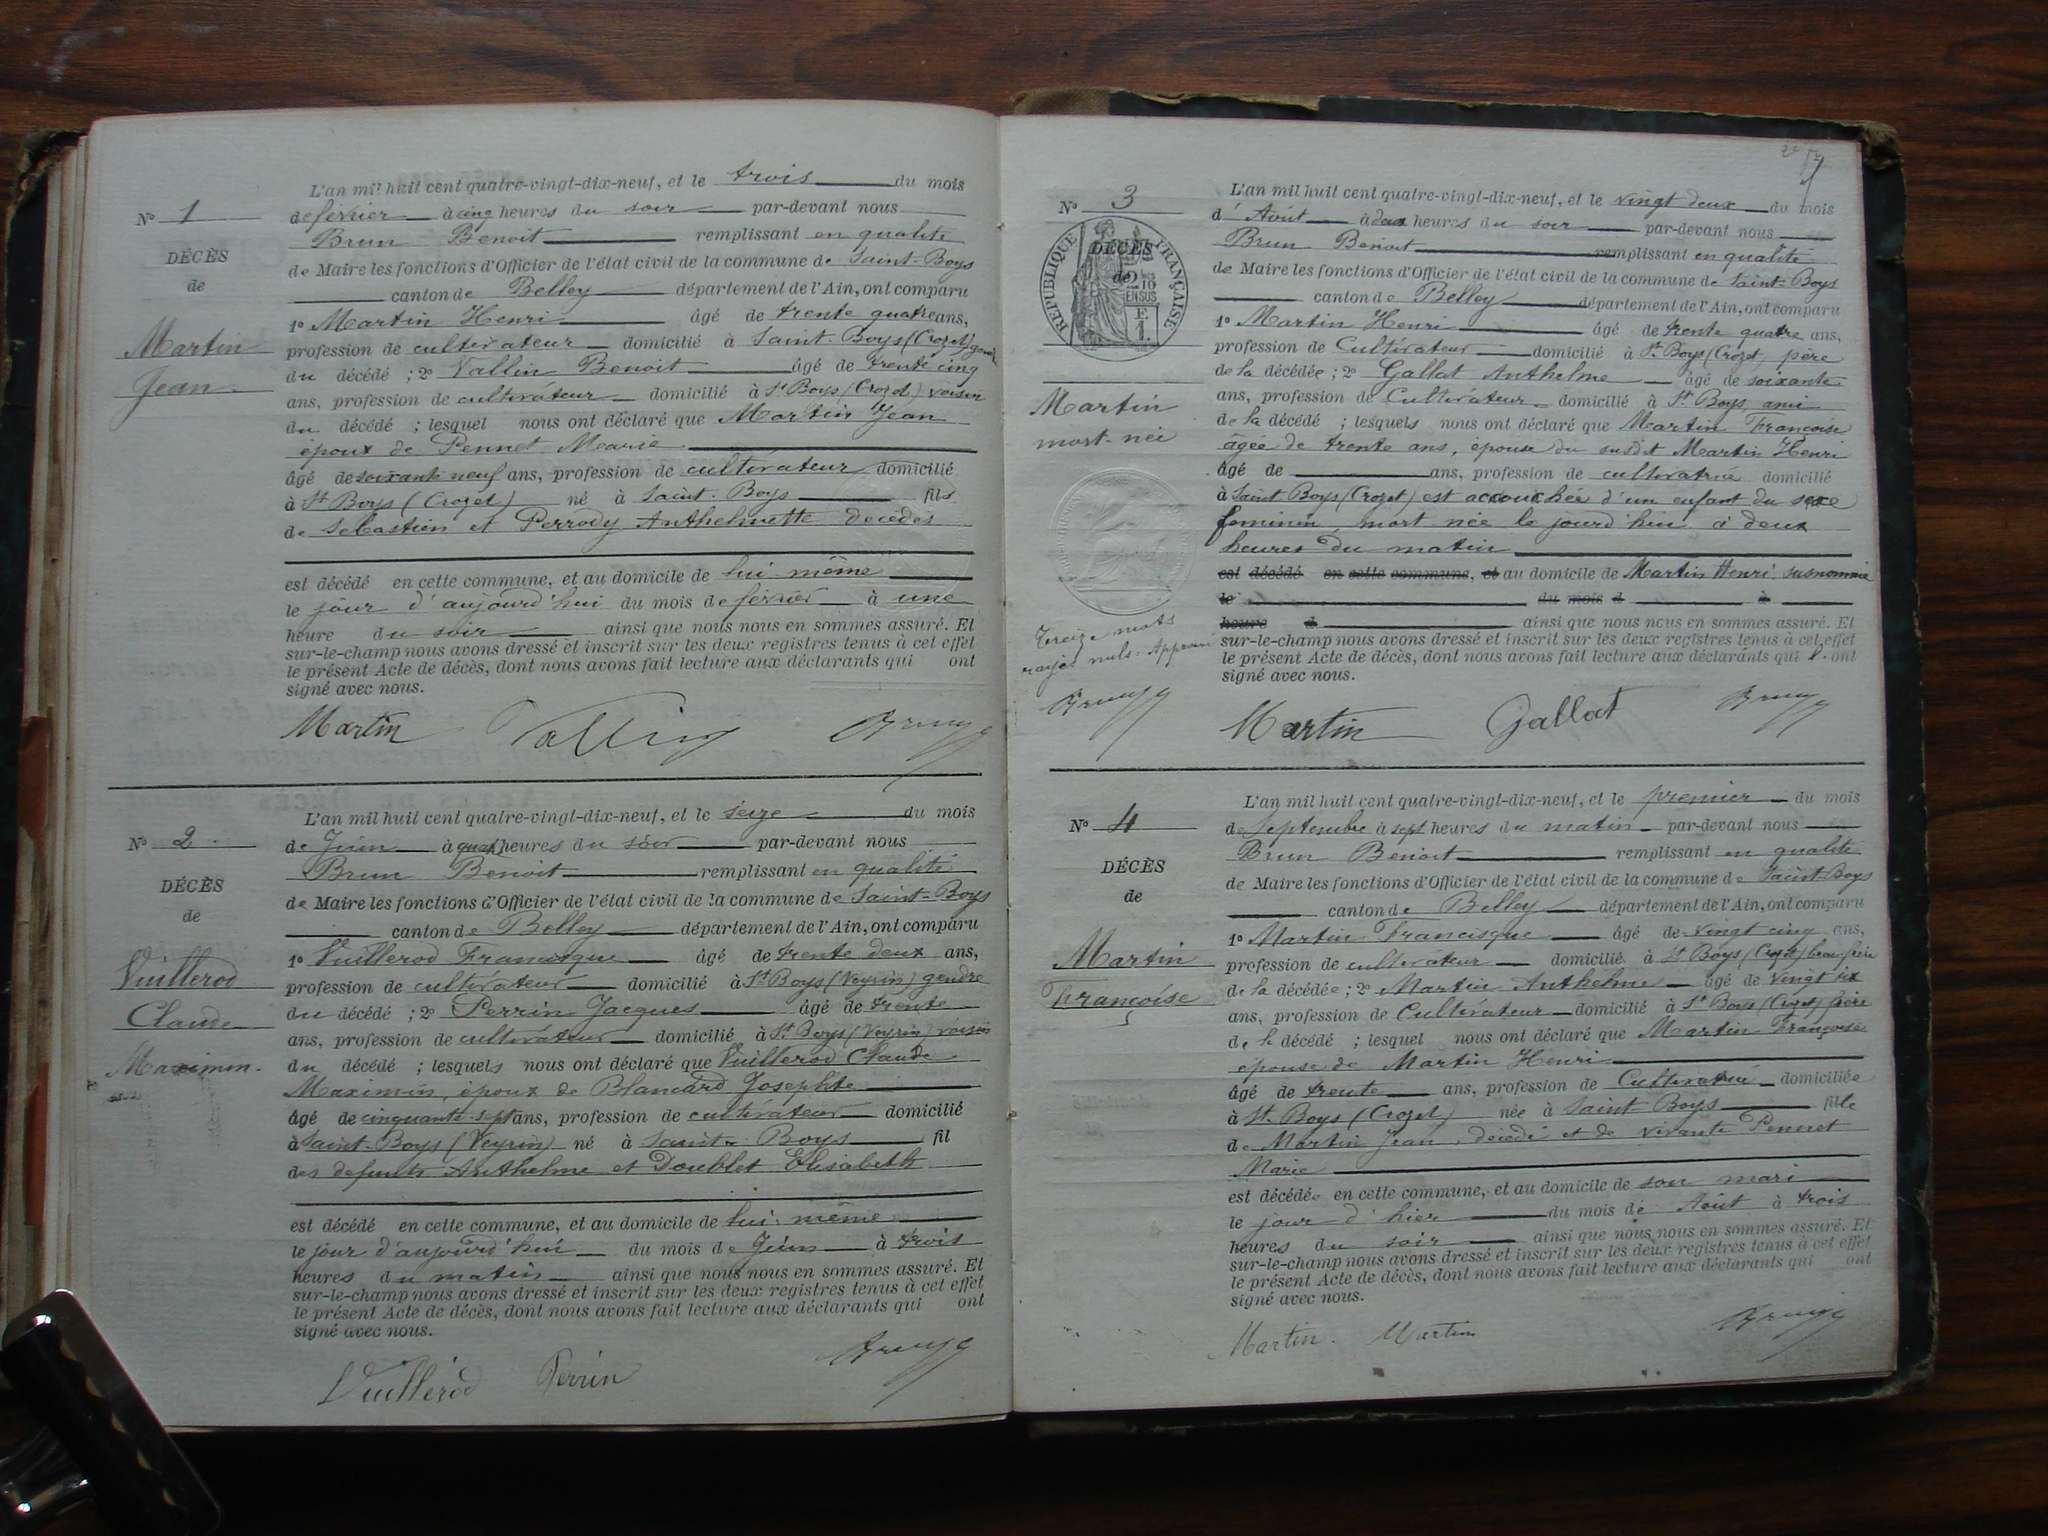 L'an mil huit cent quatre-vingt-dix-neuf, et le trois du mois
No 1
de février à cinq heures du soir par-devant nous
Brun Benoit remplissant en qualité
DÉCÈS
de
de Maire les fonctions d'Officier de l'état civil de la commune de Saint-Boys
canton de Belley département de l'Ain, ont comparu
1o Martin Henri âgé de trente quatre ans,
Martin
Jean
profession de cultivateur domicilié à Saint-Boys (Crozet)
du décédé ; 2o Vallin Benoit âgé de trente cinq
ans, profession de cultivateur domicilié à St Boys (Crozet) voisin
du décédé ; lesquel nous ont déclaré que Martin Jean
époux de Pennet Marie
âgé de soixante neuf ans, profession de cultivateur domicilié
à St Boys (Crozet) né à Saint-Boys fils
de Sébastien et Perrody Anthelmette décédés
est décédé en cette commune, et au domicile de lui-même
le jour d'aujourd'hui du mois de février à une
heure du soir ainsi que nous nous en sommes assuré. Et
sur-le-champ nous avons dressé et inscrit sur les deux registres tenus à cet effet
le présent Acte de décès, dont nous avons fait lecture aux déclarants qui ont
signé avec nous.
Martin Vallin Brun
L'an mil huit cent quatre-vingt-dix-neuf, et le seize du mois
No 2
de Juin à quatre heures du soir par-devant nous
Brun Benoit remplissant en qualité
DÉCÈS
de
de Maire les fonctions d'Officier de l'état civil de la commune de Saint-Boys
canton de Belley département de l'Ain, ont comparu
Vuillerod
Claude
Maximin.
1o Vuillerod Francisque âgé de trente deux ans,
profession de cultivateur domicilié à St Boys (Veyrin) gendre
du décédé ; 2o Perrin Jacques âgé de trente
ans, profession de cultivateur domicilié à St Boys (Veyrin) voisin
du décédé ; lesquels nous ont déclaré que Vuillerod Claude
Maximin, époux de Blancard Josephte
âgé de cinquante sept ans, profession de cultivateur domicilié
à Saint-Boys (Veyrin) né à Saint-Boys fil
des défunts Anthelme et Doublet Elisabeth
est décédé en cette commune, et au domicile de lui-même
le jour d'aujourd'hui du mois de Juin à trois
heures du matin ainsi que nous nous en sommes assuré. Et
sur-le-champ nous avons dressé et inscrit sur les deux registres tenus à cet effet
le présent Acte de décès, dont nous avons fait lecture aux déclarants qui ont
signé avec nous.
Vuillerod Perrin Brun
L'an mil huit cent quatre-vingt-dix-neuf, et le vingt deux du mois
No 3
d'Août à deux heures du soir par-devant nous
Brun Benoit remplissant en qualité
RÉPUBLIQUE FRANÇAISE
DÉCÈS
de
de Maire les fonctions d'Officier de l'état civil de la commune de Saint-Boys
canton de Belley département de l'Ain, ont comparu
1o Martin Henri âgé de trente quatre ans,
profession de Cultivateur domicilié à St Boys (Crozet, père
de la décédée ; 2o Gallat Anthelme âgé de soixante
Martin
mort-née
ans, profession de Cultivateur domicilié à St Boys, ami
de la décédé ; lesquels nous ont déclaré que Martin Francoise
âgée de trente ans, épouse du susdit Martin Henri
âgé de ans, profession de cultivatrice domicilié
à Saint Boys (Crozet) est accouchée d'un enfant du sexe
feminin, mort-née le jourd'hui à deux
heures du matin
est décédé en cette commune, et au domicile de Martin Henri susnommé
le du mois d à
heure d ainsi que nous nous en sommes assuré. Et
Treize mots
rayés nuls. Approuvé
Brun
sur-le-champ nous avons dressé et inscrit sur les deux registres tenus à cet effet
le présent Acte de décès, dont nous avons fait lecture aux déclarants qui l'ont
signé avec nous.
Martin Gallat Brun
L'an mil huit cent quatre-vingt-dix-neuf, et le premier du mois
No 4
de Septembre à sept heures du matin par-devant nous
Brun Benoit remplissant en qualité
DÉCÈS
de
de Maire les fonctions d'Officier de l'état civil de la commune de Saint-Boys
canton de Belley département de l'Ain, ont comparu
1o Martin Francisque âgé de vingt cinq ans,
Martin
Françoise
profession de cultivateur domicilié à St Boys (Crozet) beau-frère
de la décédée ; 2o Martin Anthelme âgé de vingt six
ans, profession de Cultivateur domicilié à St Boys (Crozet) frère
de la décédé ; lesquel nous ont déclaré que Martin Françoise
épouse de Martin Henri
âgé de trente ans, profession de Cultivatrice domiciliée
à St. Boys (Crozet) née à Saint Boys fille
de Martin Jean, décédé et de vivante Pennet
Marie
est décédée en cette commune, et au domicile de son mari
le jour d'hier du mois de Août à trois
heures du soir ainsi que nous nous en sommes assuré. Et
sur-le-champ nous avons dressé et inscrit sur les deux registres tenus à cet effet
le présent Acte de décès, dont nous avons fait lecture aux déclarants qui ont
signé avec nous.
Martin. Martin Brun